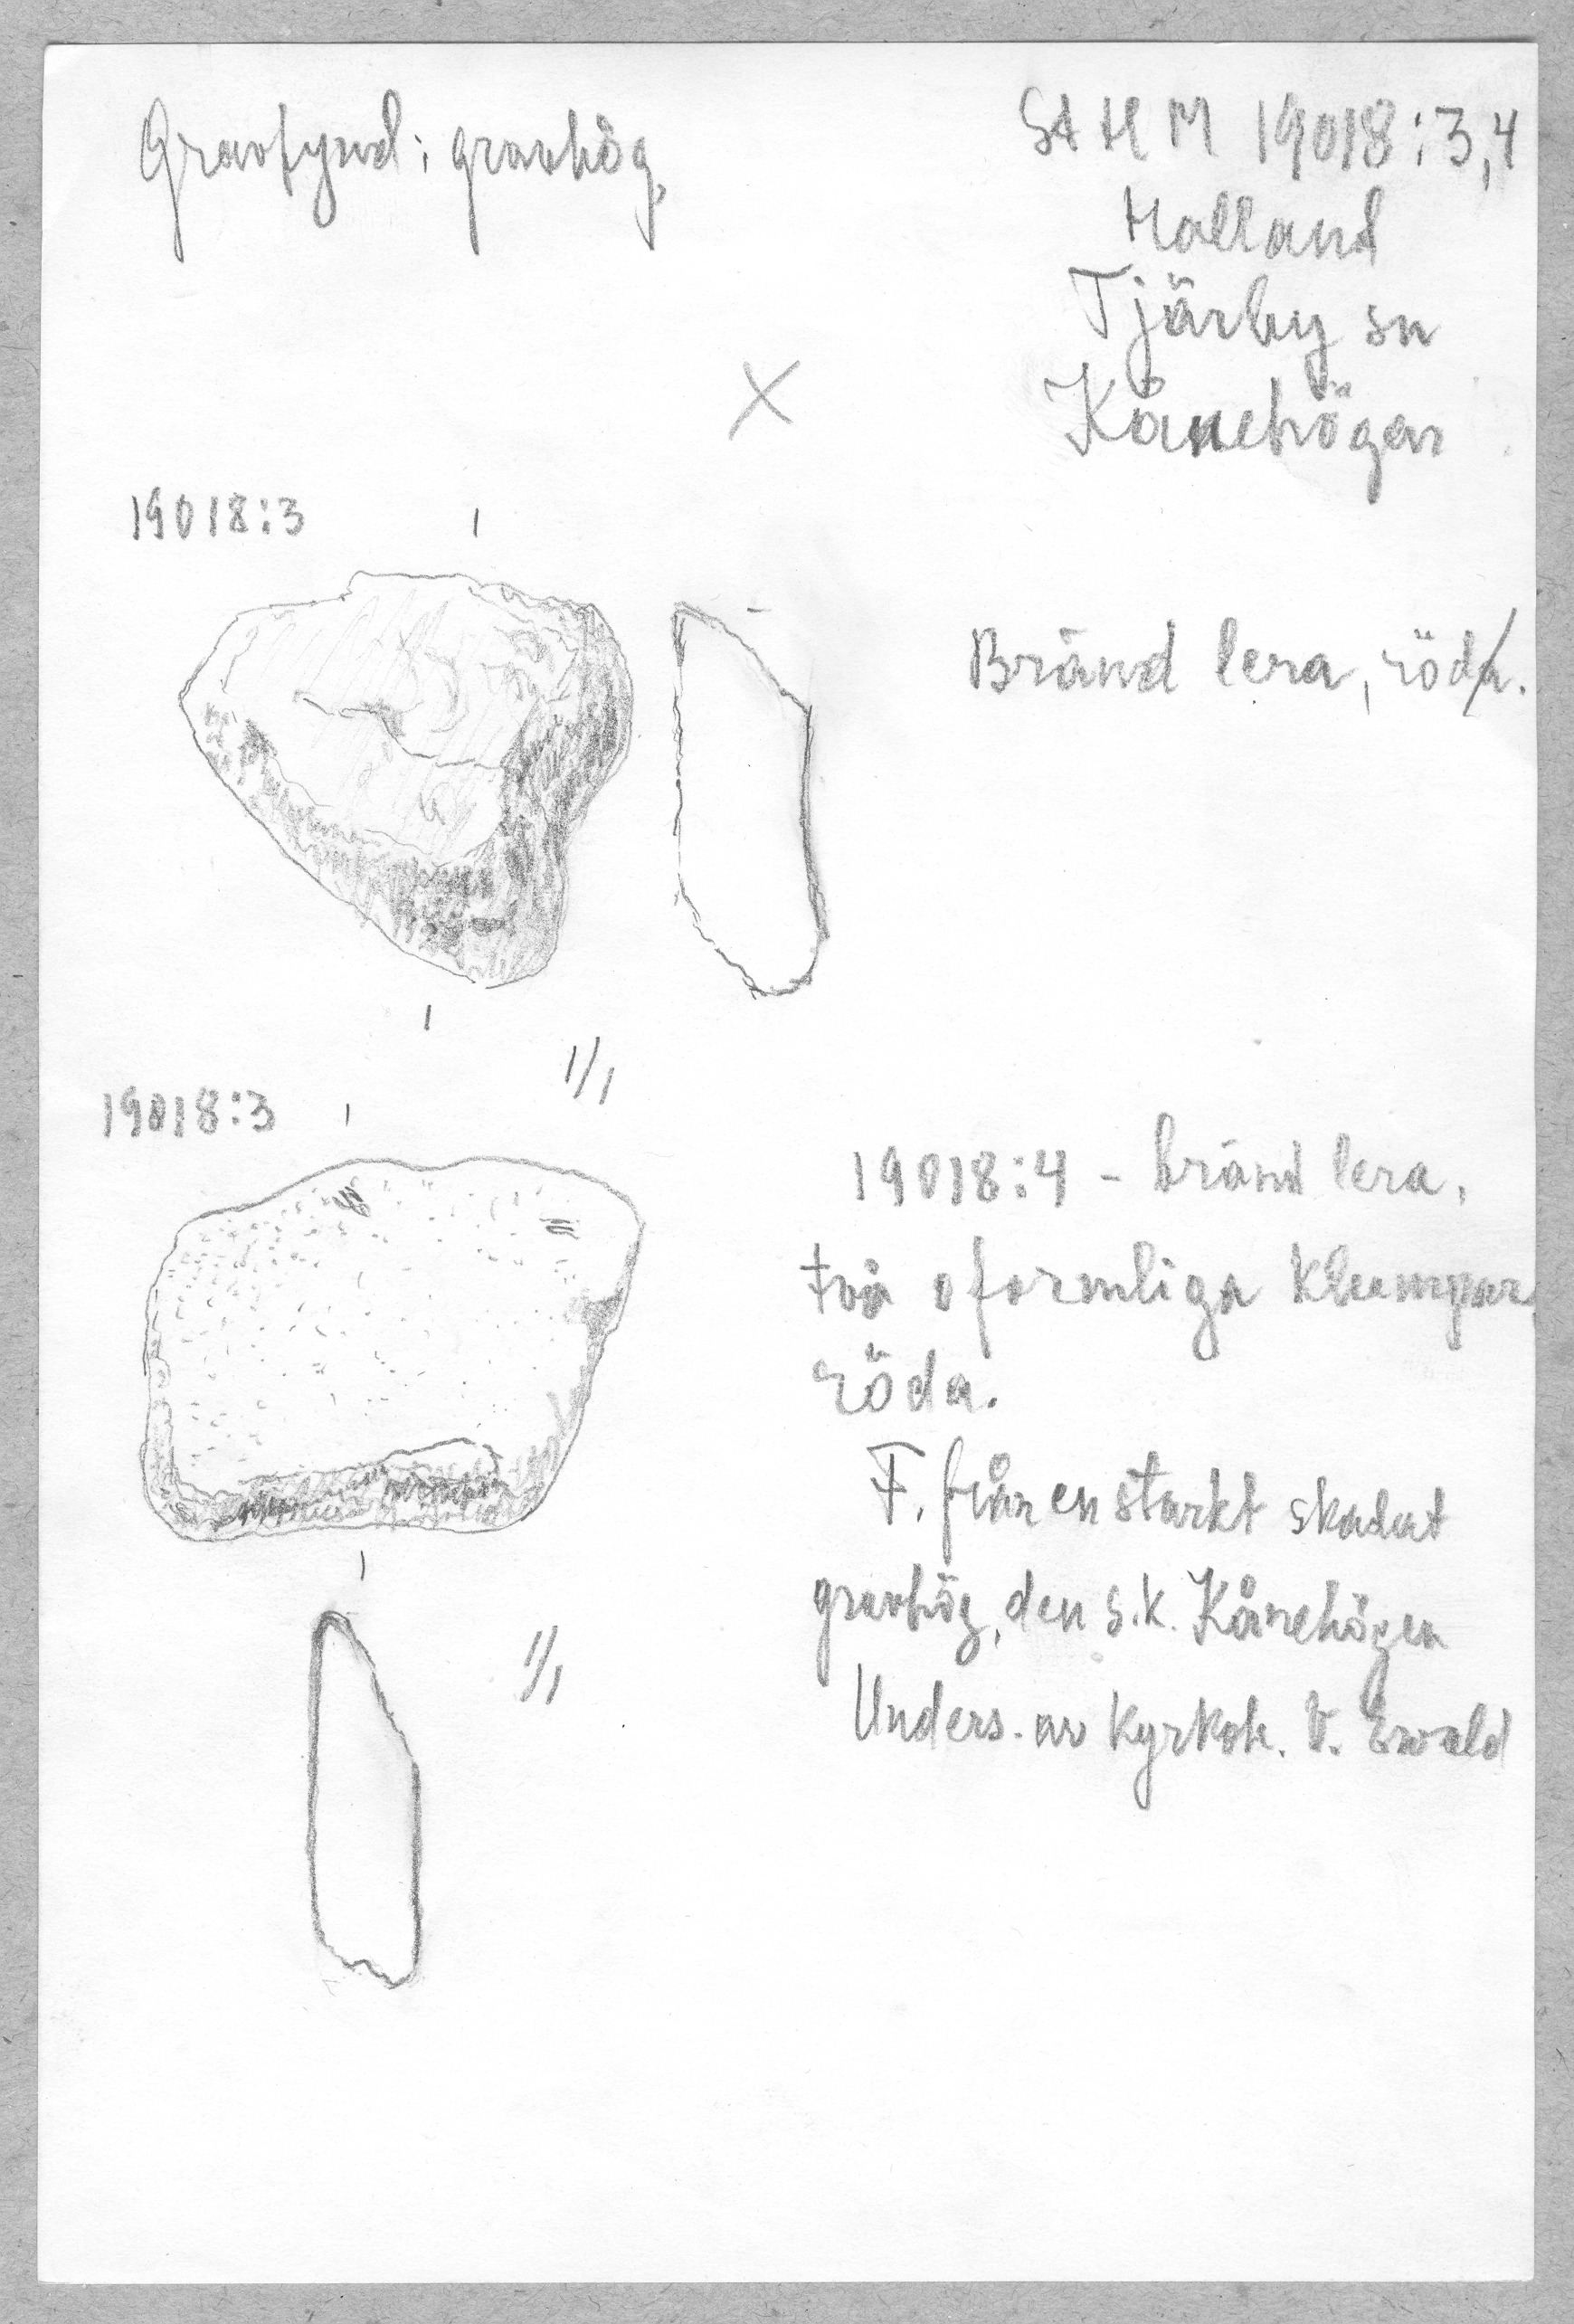 Gravfynd: gravhög,
St H M 19018:3,4
Halland
Tjärby sn
Kånehögen
X
19018:3
Bränd lera, röda.
1/1
19018:3
19018:4 - bränd lera,
två oformliga klumpar
röda.
F. från en starkt skadat
gravhög, den s.k. Kånehögen
Unders. av Kyrkoh. V. Ewald
1/1